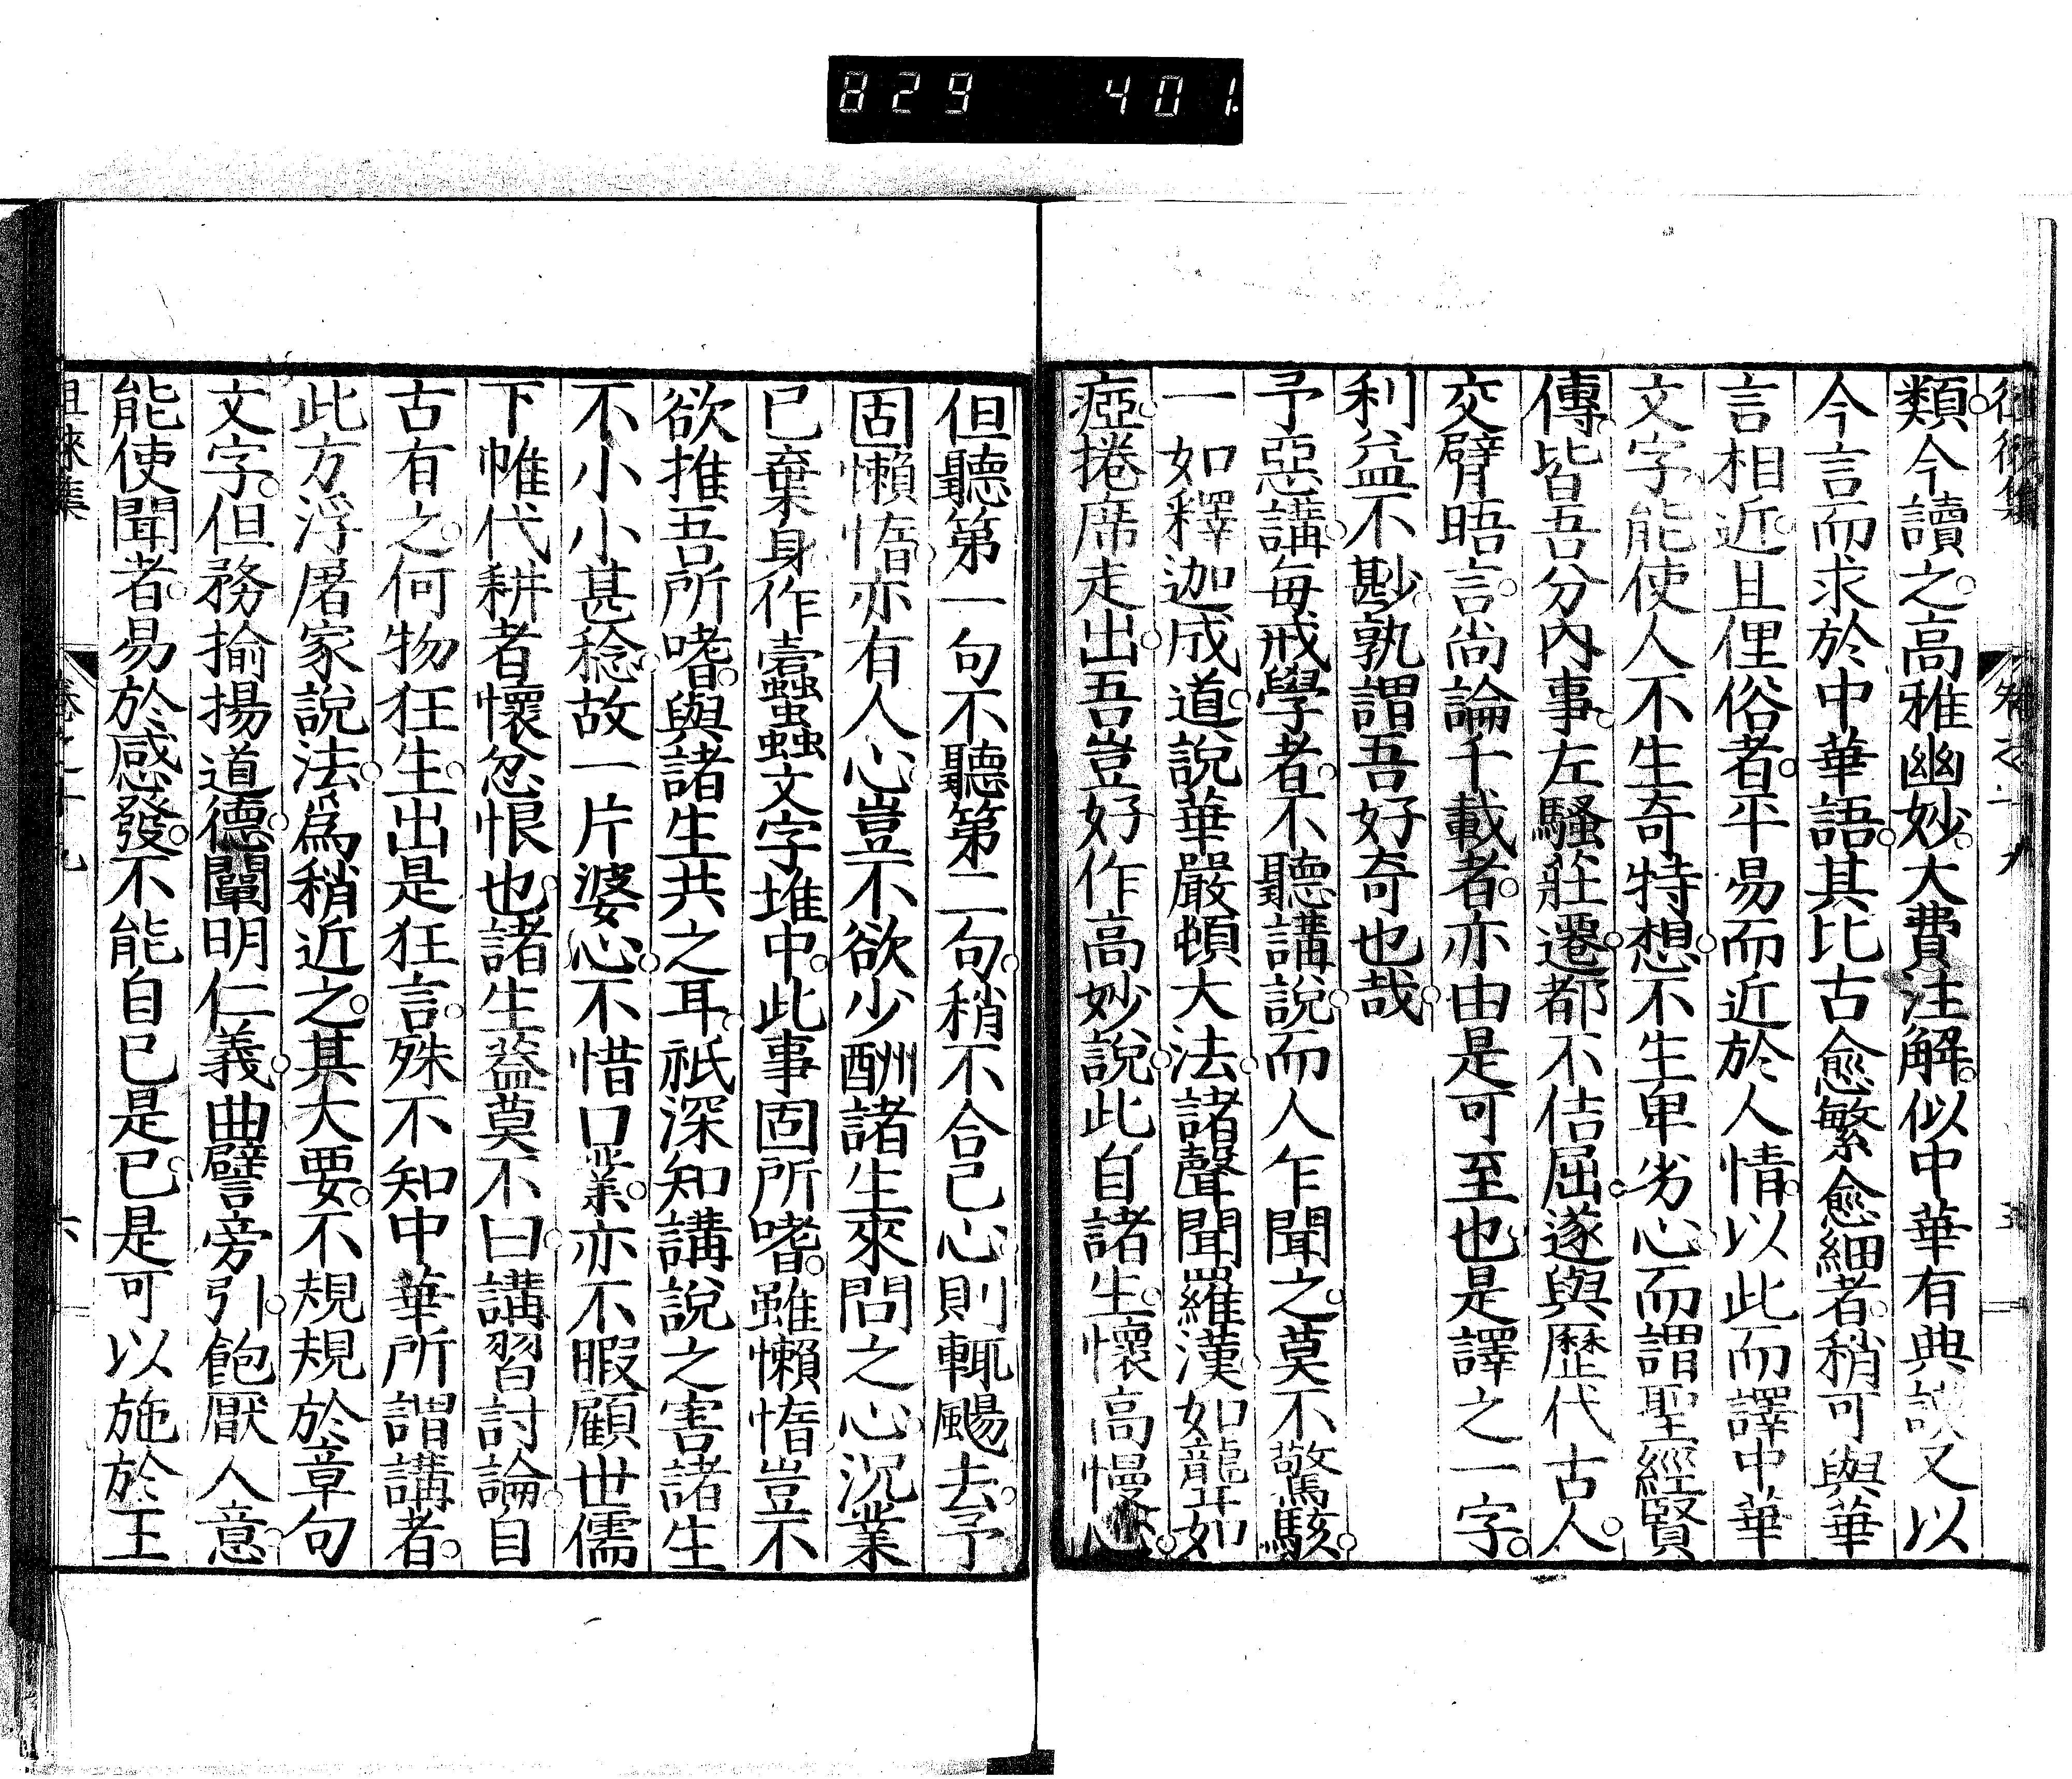 829 401.
類今讀之高雅幽妙大費注解似中華有典謨又以
今言而求於中華語其比古愈繁愈細者稍可與華
言相近且俚俗者平易而近於人情以此而譯中華
文字能使人不生奇特想不生卑劣心而謂聖經賢
傳皆吾分內事左騷莊遷都不佶屈遂與歷代古人
交臂晤言尚論千載者亦由是可至也是譯之一字
利益不尠孰謂吾好奇也哉
予惡講每戒學者不聽講說而人乍聞之莫不驚駭
一如釋迦成道說華嚴頓大法諸聲聞羅漢如聾如
瘂捲席走出吾豈好作高妙說此自諸生懷高慢心
但聽第一句不聽第二句稍不合己心則輒颺去予
固懶惰亦有人心豈不欲少酬諸生來問之心沉業
已棄身作蠹蟲文字堆中此事固所嗜雖懶惰豈不
欲推吾所嗜與諸生共之耳祇深知講說之害諸生
不小小甚稔故一片婆心不惜口業亦不暇顧世儒
下帷代耕者懷忿恨也諸生蓋莫不曰講習討論自
古有之何物狂生出是狂言殊不知中華所謂講者
此方浮屠家說法爲稍近之其大要不規規於章句
文字但務揄揚道德闡明仁義曲譬旁引飽厭人意
能使聞者易於感發不能自已是已是可以施於王
徠集